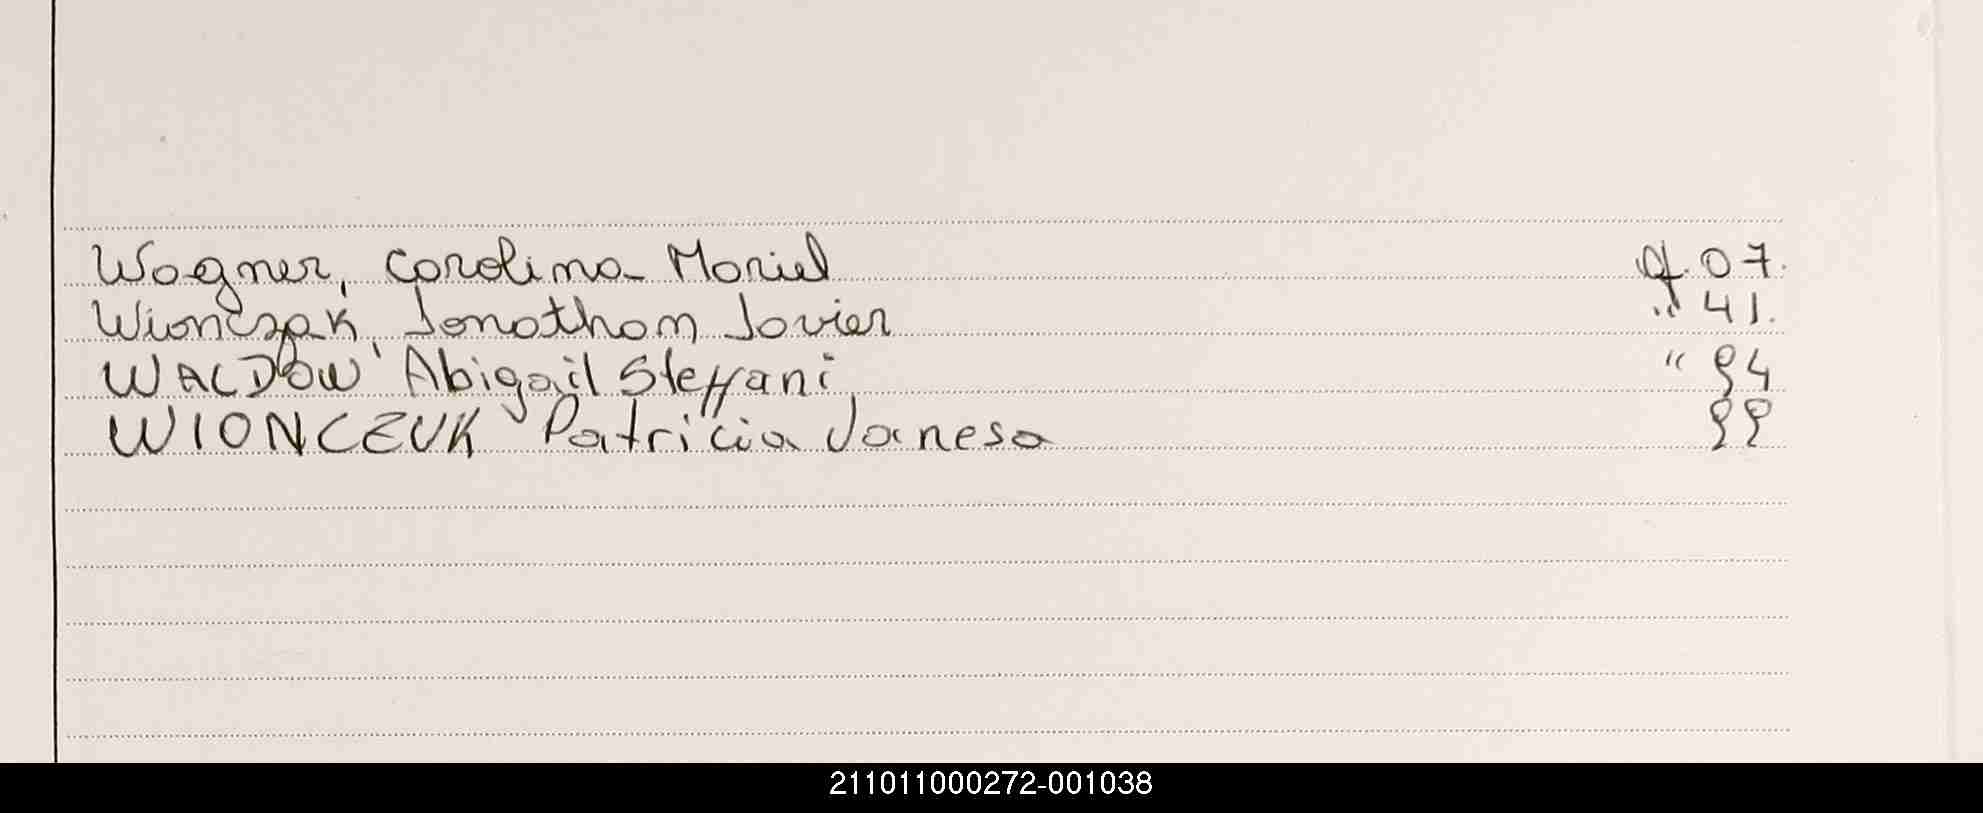 Wagner, Carolina Mariel af. 07.
Wionczak, Jonathan Javier " 41.
WALDOW Abigail Steffani " 94
WIONCZUK Patricia Vanesa 99
211011000272-001038